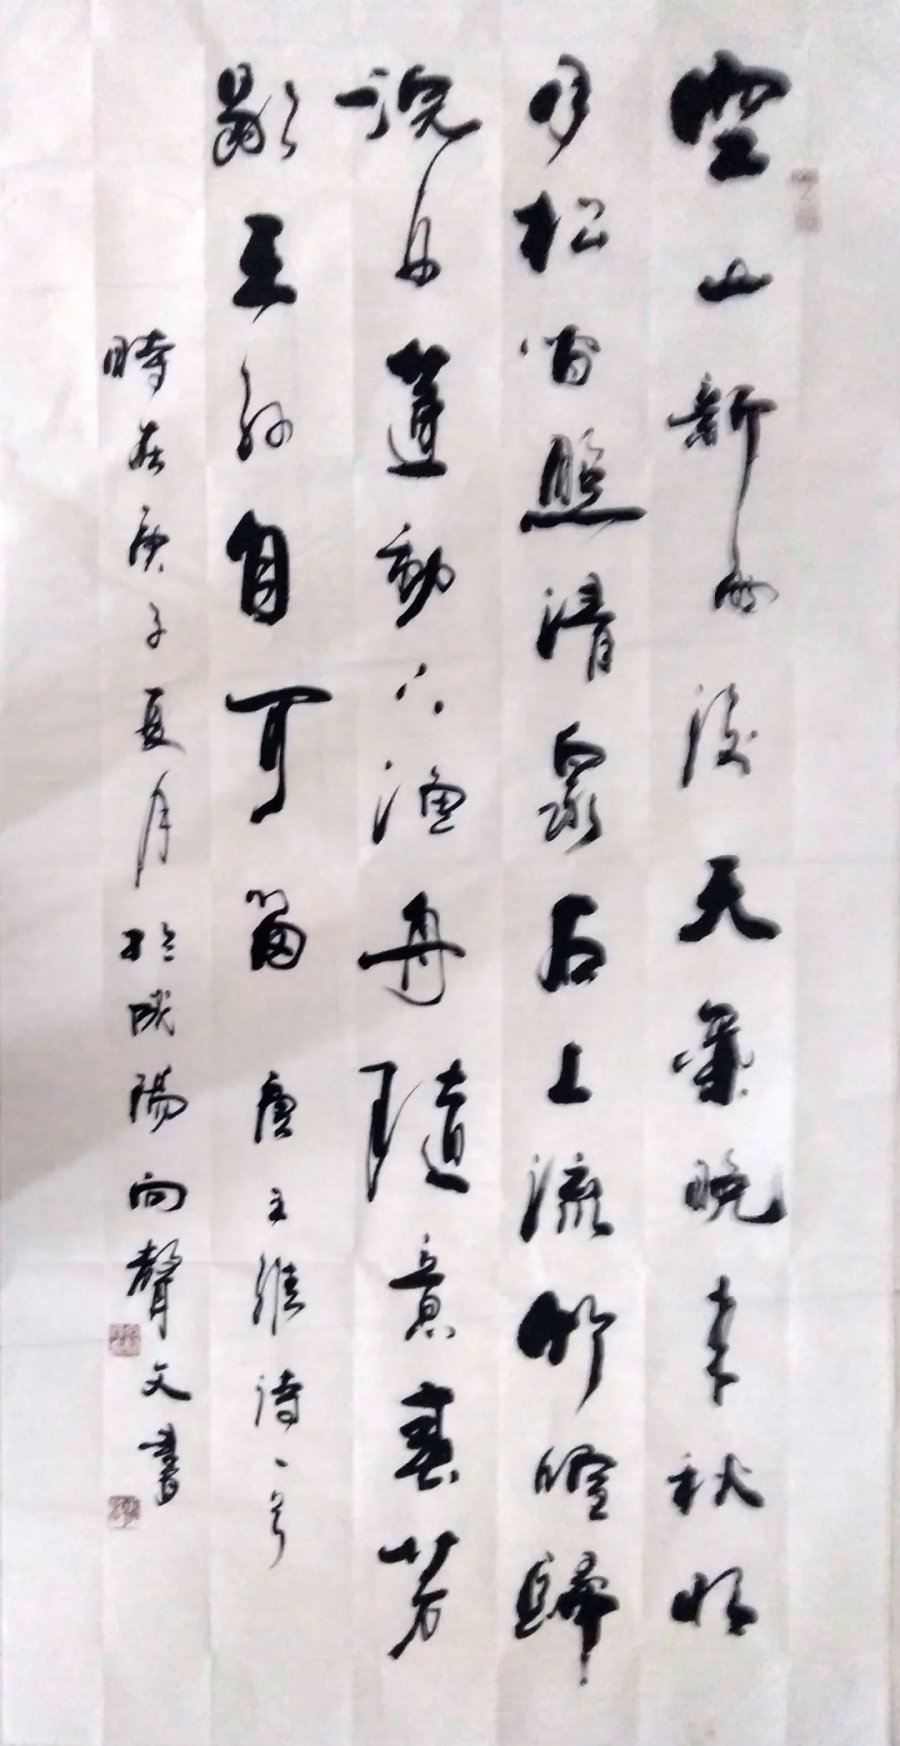 空山新雨後天氣晚來秋明
月松間照清泉石上流竹喧歸
浣女蓮動下漁舟隨意春芳
歇王孫自可留 唐王維詩一首
時在庚子夏月於咸陽向聲文書